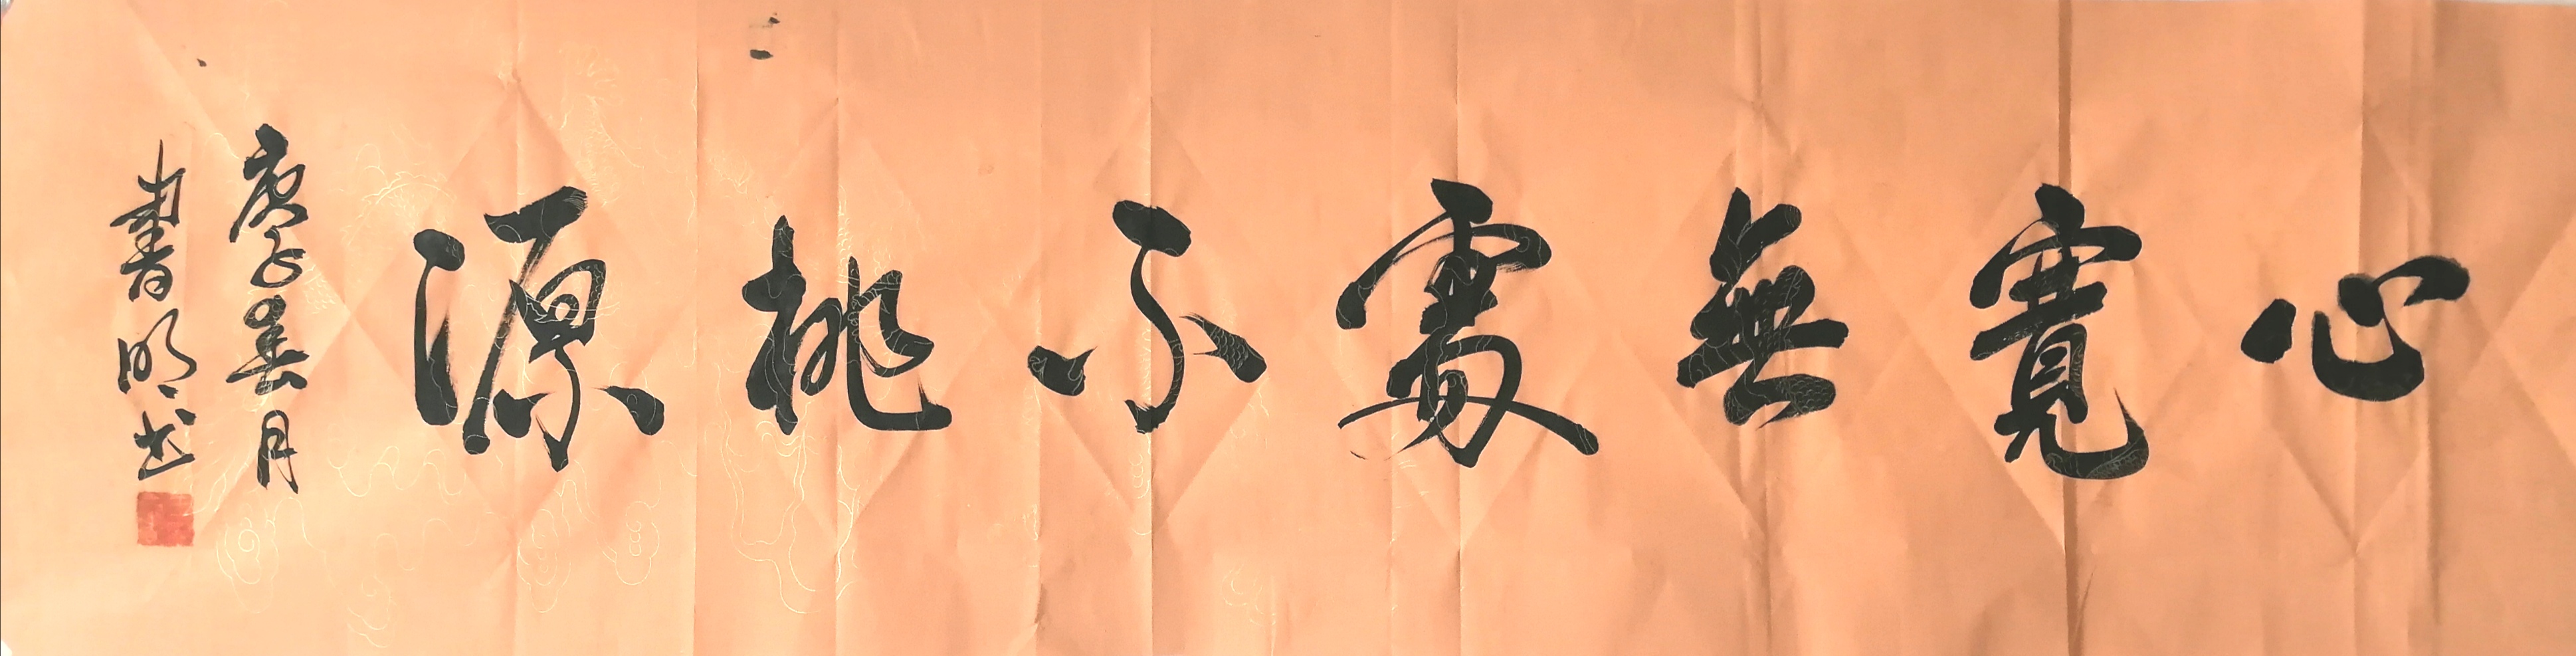 心寬無處不桃源
庚子春月
書明书